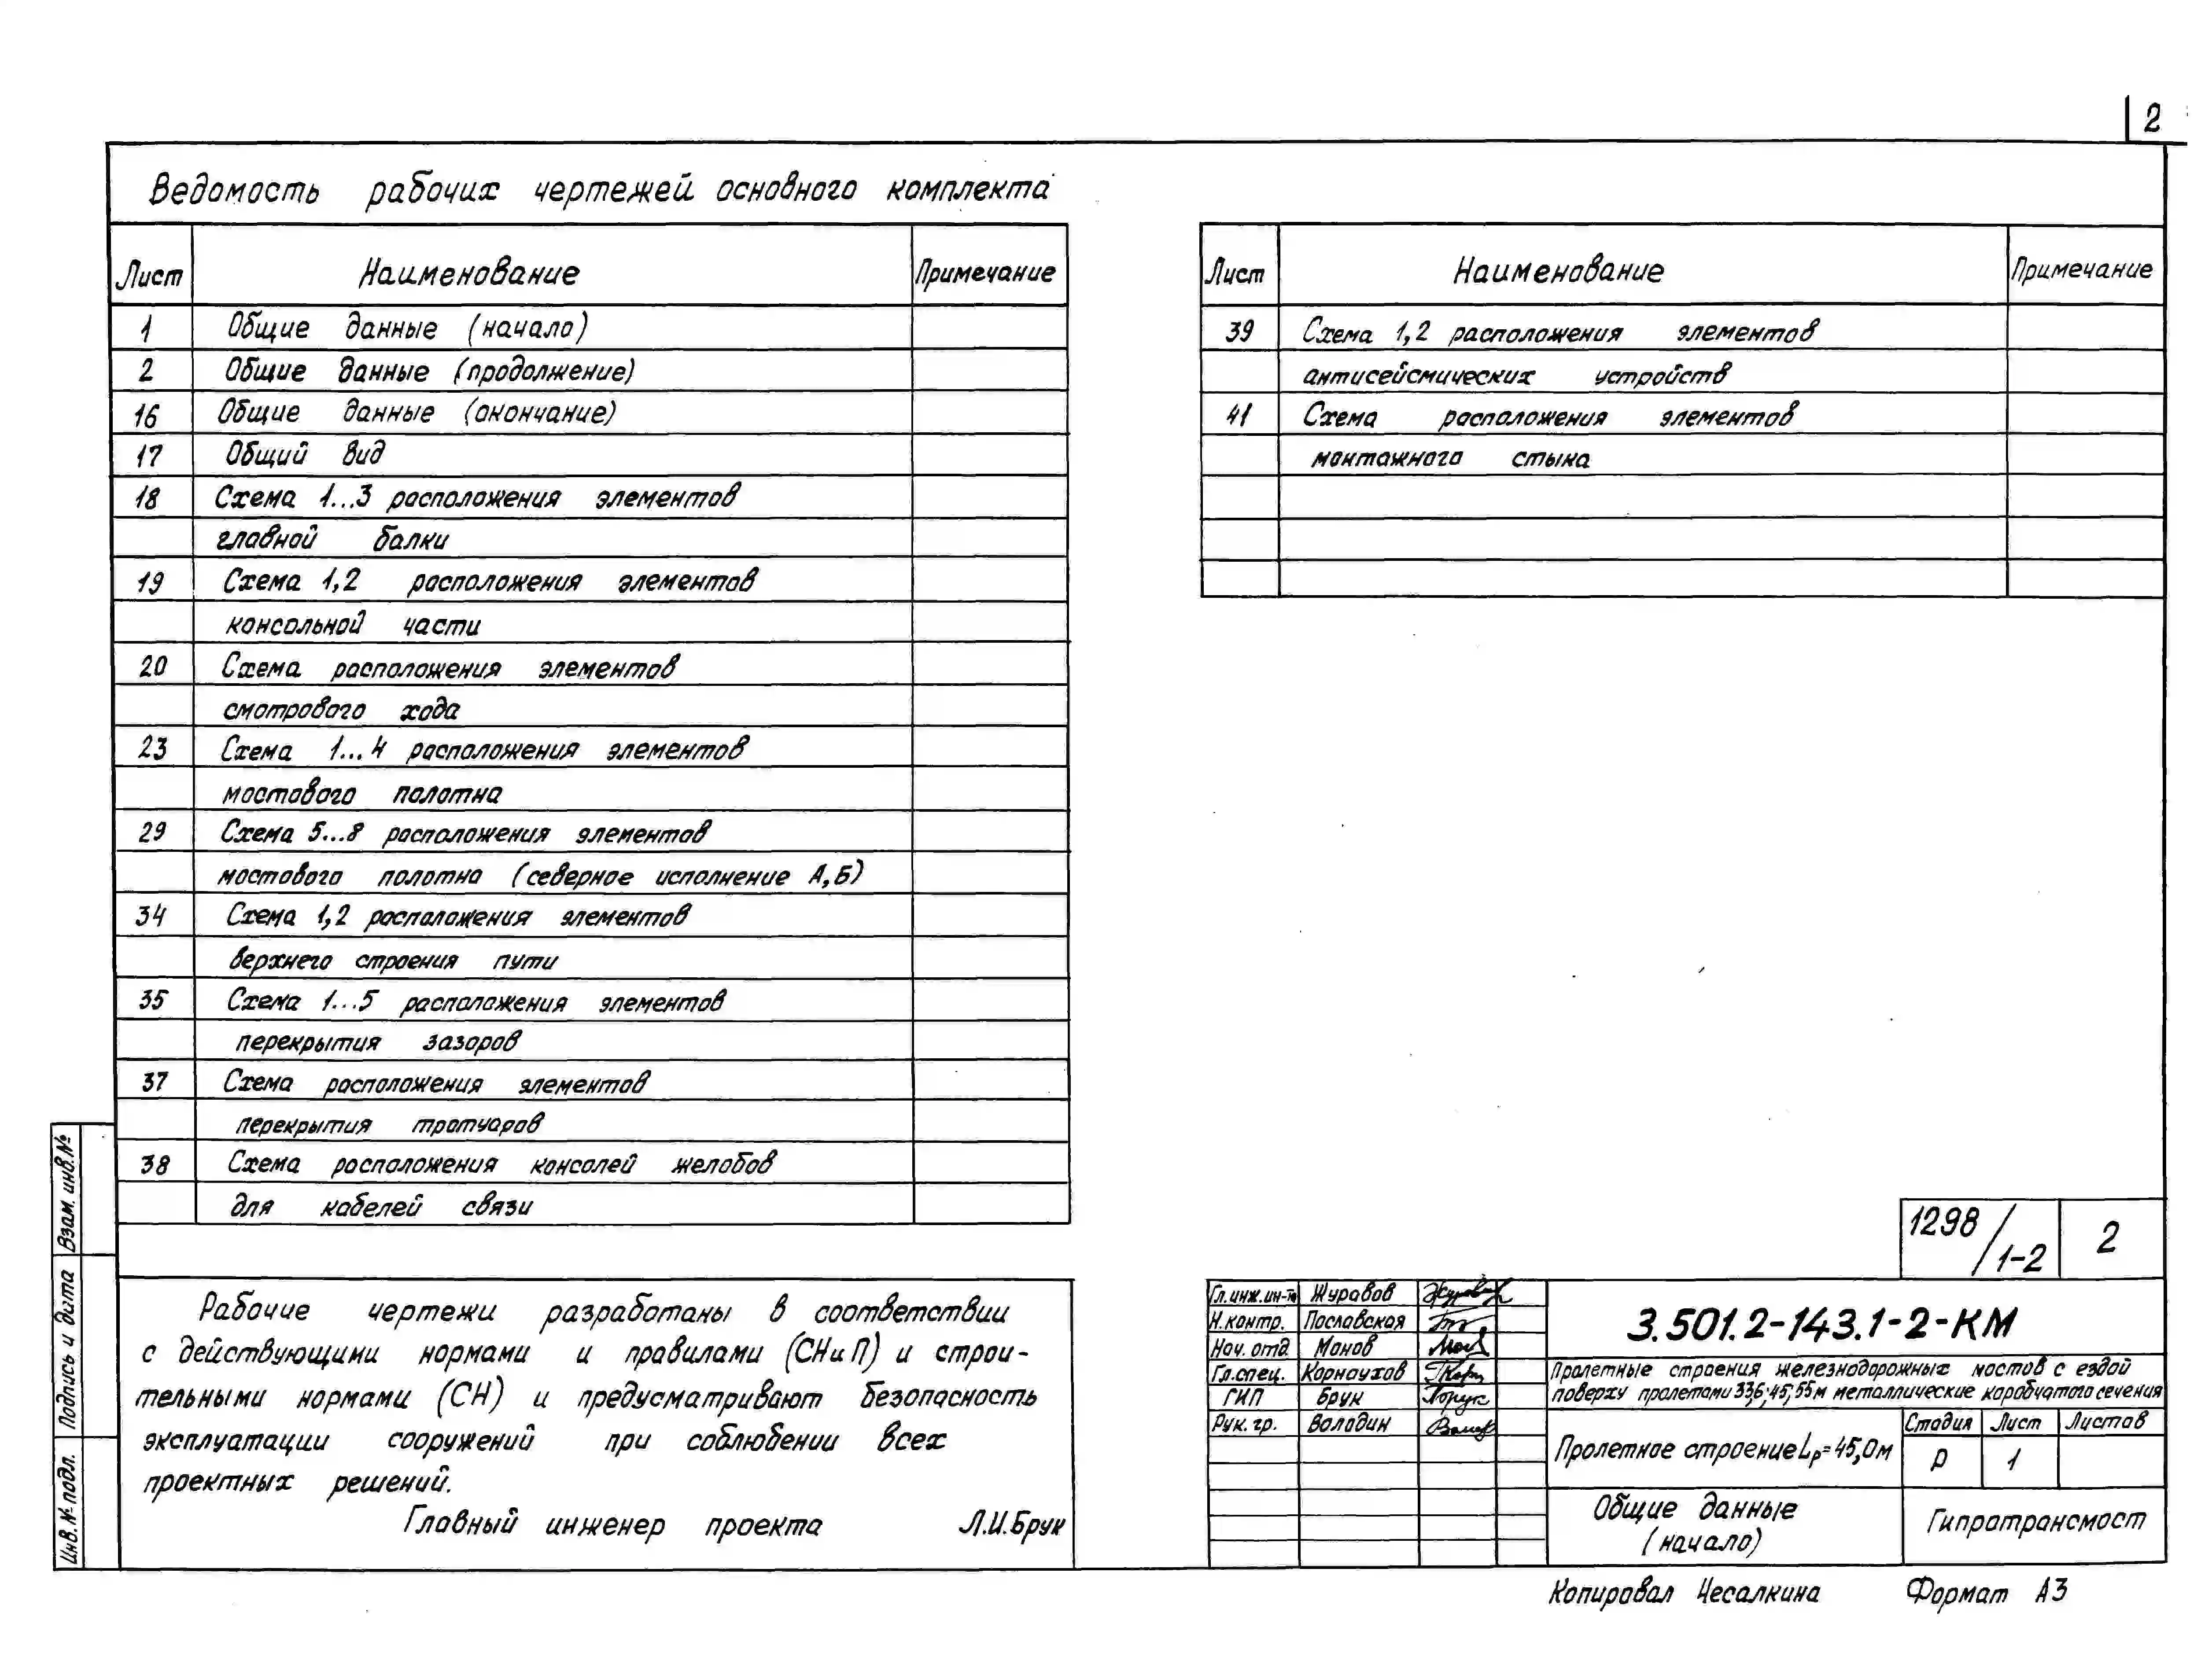 2
Ведомость рабочих чертежей основного комплекта
Лист Наименование Примечание
1 Общие данные (начало)
2 Общие данные (продолжение)
16 Общие данные (окончание)
17 Общий вид
18 Схема 1...3 расположения элементов
главной балки
19 Схема 1,2 расположения элементов
консольной части
20 Схема расположения элементов
смотрового хода
23 Схема 1...4 расположения элементов
мостового полотна
29 Схема 5...8 расположения элементов
мостового полотна (северное исполнение А,Б)
34 Схема 1,2 расположения элементов
верхнего строения пути
35 Схема 1...5 расположения элементов
перекрытия зазоров
37 Схема расположения элементов
перекрытия тротуаров
38 Схема расположения консолей желобов
для кабелей связи
Лист Наименование Примечание
39 Схема 1,2 расположения элементов
антисейсмических устройств
41 Схема расположения элементов
монтажного стыка
Рабочие чертежи разработаны в соответствии
с действующими нормами и правилами (СНиП) и строи-
тельными нормами (СН) и предусматривают безопасность
эксплуатации сооружений при соблюдении всех
проектных решений.
Главный инженер проекта Л.И.Брук
Взам. инв.№
Подпись и дата
Инв.№ подл.
1298/1-2 2
Гл.инж.ин-та Журавов
Н.контр. Пославская
Нач. отд Монов
Гл.спец. Корноухов
ГИП Брук
Рук. гр. Володин
3.501.2-143.1-2-КМ
Пролетные строения железнодорожных мостов с ездой
поверху пролетами 33,6; 45; 55м металлические коробчатого сечения
Пролетное строение Lp=45,0м
Стадия Лист Листов
Р 1
Общие данные
(начало)
Гипротрансмост
Копировал Чесалкина Формат А3